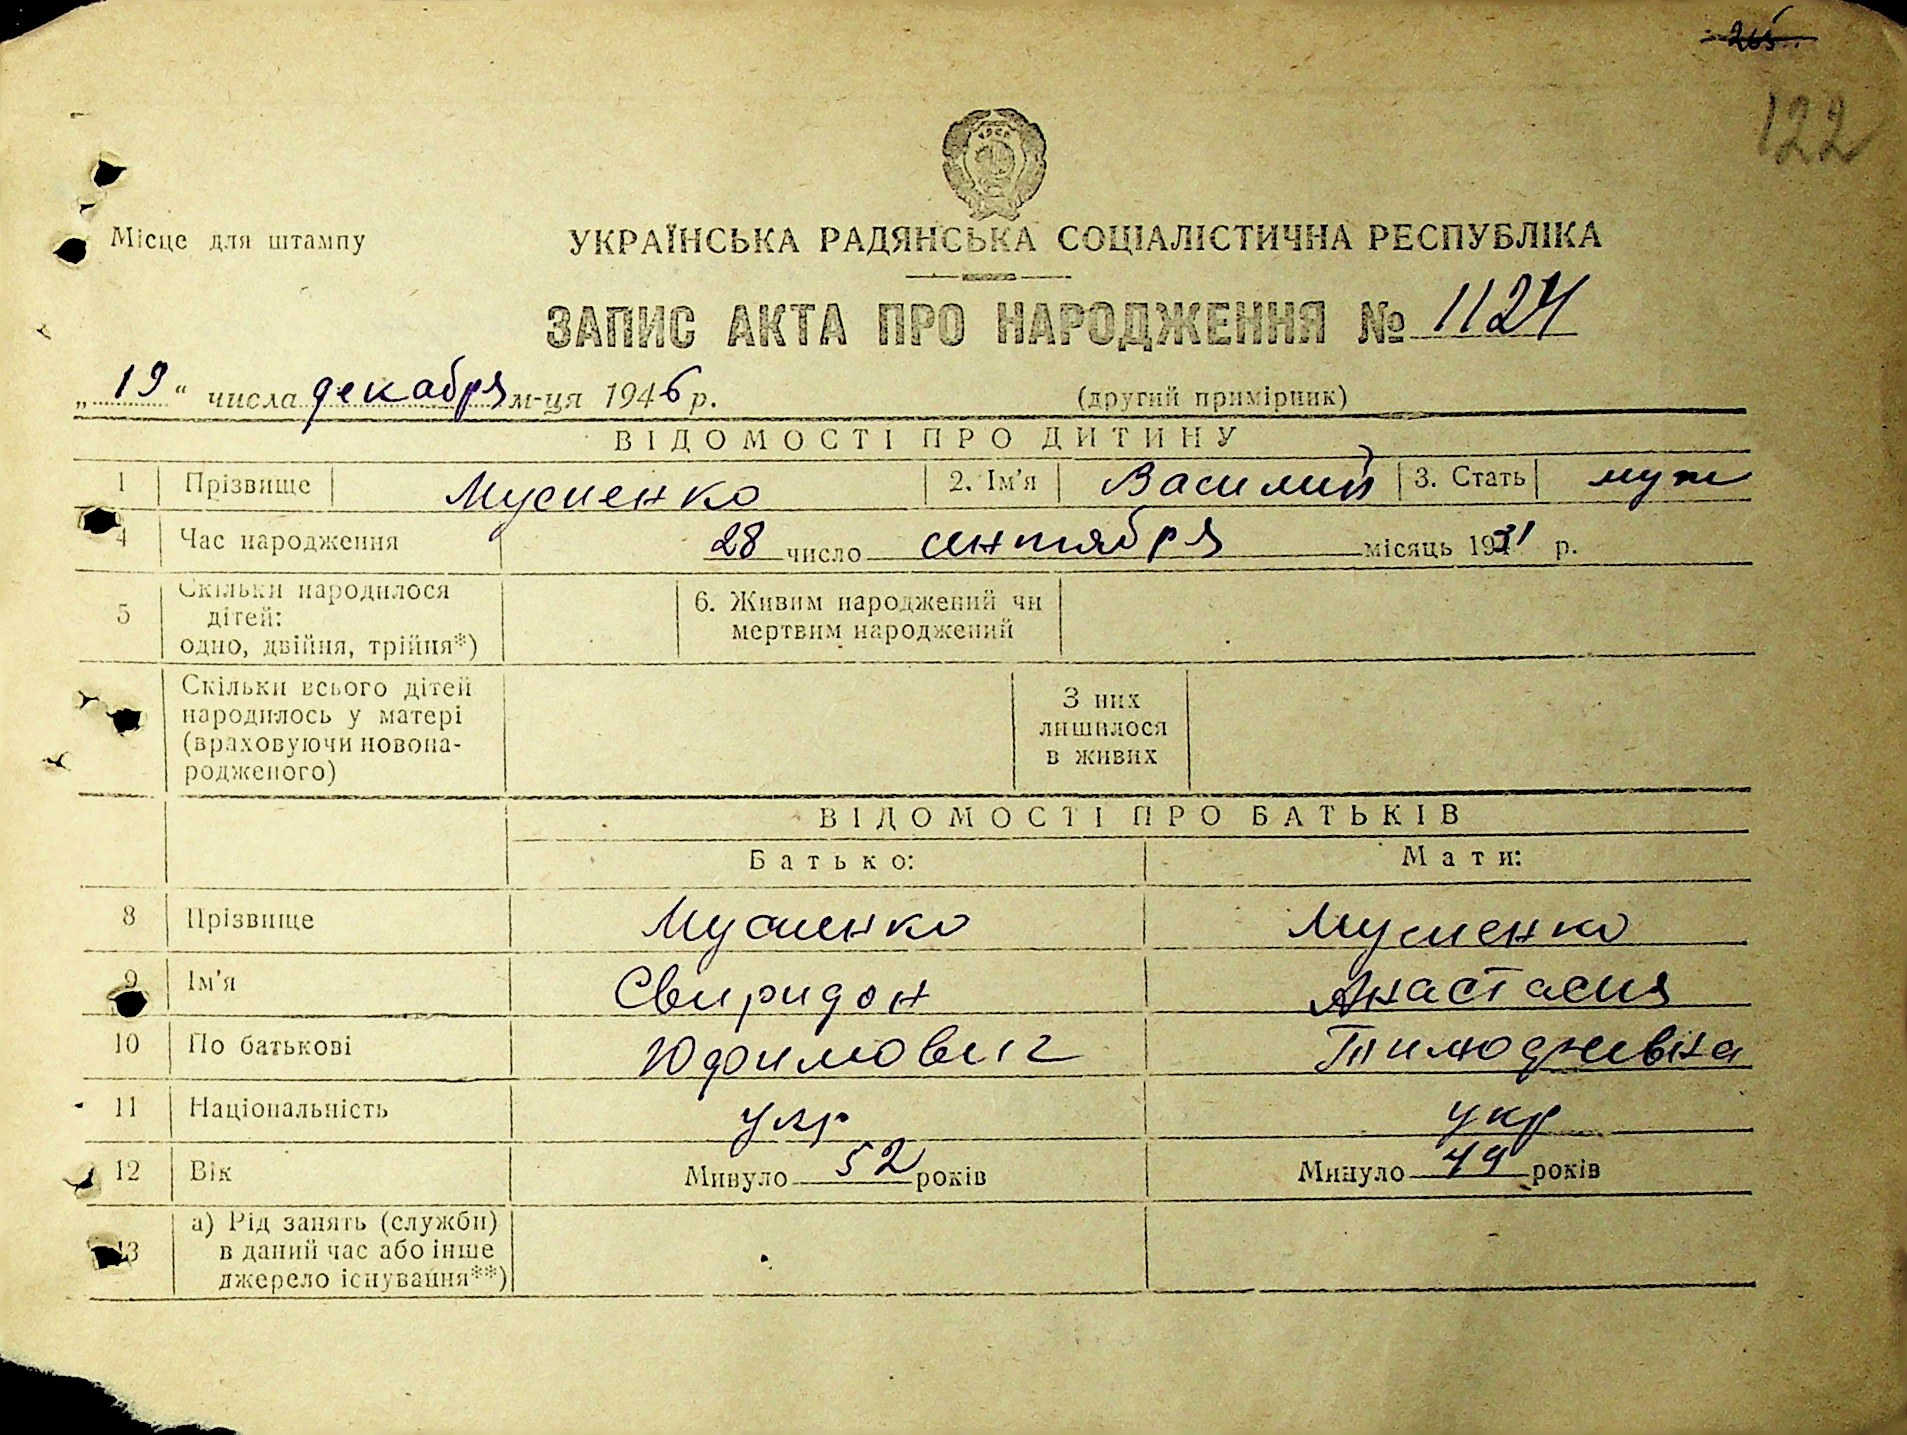 265
122
Місце для штампу
УКРАЇНСЬКА РАДЯНСЬКА СОЦІАЛІСТИЧНА РЕСПУБЛІКА
ЗАПИС АКТА ПРО НАРОДЖЕННЯ № 1124
„19“ числа декабря м-ця 1946 р. (другий примірник)
ВІДОМОСТІ ПРО ДИТИНУ
1 Прізвище Мусиенко 2. Ім'я Василий 3. Стать муж
4 Час народження 28 число сентября місяць 1931 р.
5 Скільки народилося дітей: одно, двійня, трійня*) 6. Живим народжений чи мертвим народжений
Скільки всього дітей народилось у матері (враховуючи новонародженого) З них лишилося в живих
ВІДОМОСТІ ПРО БАТЬКІВ
Батько: Мати:
8 Прізвище Мусиенко Мусиенко
9 Ім'я Свиридон Анастасия
10 По батькові Юфимович
11 Національність укр укр
12 Вік Минуло 52 років Минуло 49 років
13 а) Рід занять (служби) в даний час або інше джерело існування**)